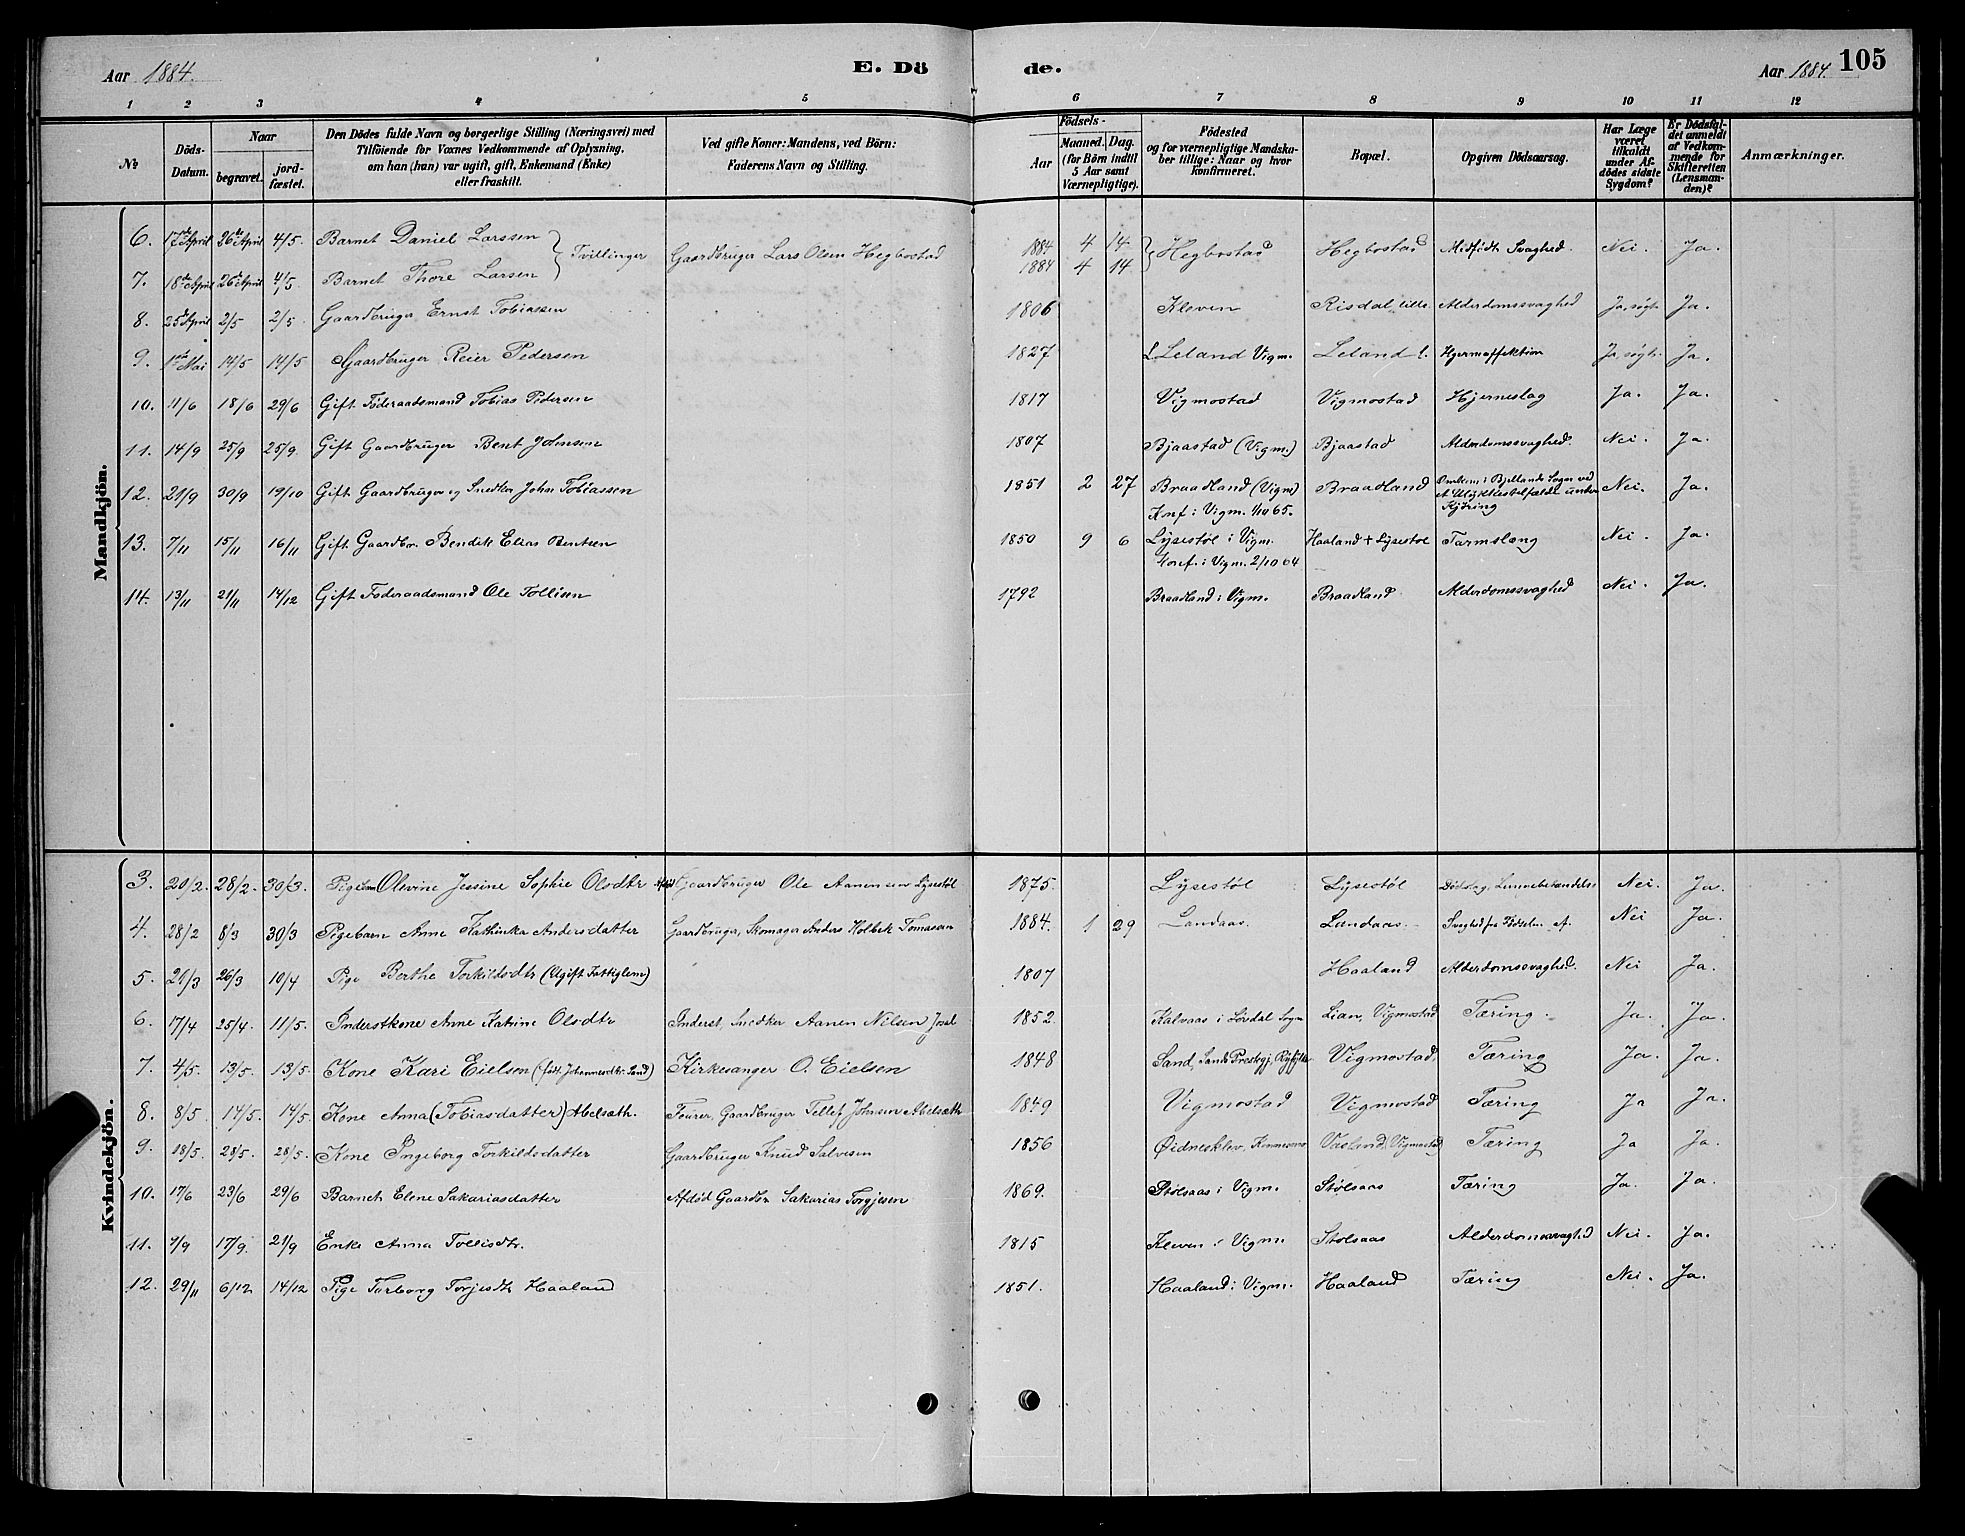 Aar 1884.
E. Dö
de.
Aar 1884.
105
1 2 3 4 5 6 7 8 9 10 11 12
№
Döds-Datum.
Naar
begravet.
jord-fæstet.
Den Dödes fulde Navn og borgerlige Stilling (Næringsvei) med
Tilföiende for Voxnes Vedkommende af Oplysning,
om han (hun) var ugift, gift, Enkemand (Enke)
eller fraskilt.
Ved gifte Koner: Mandens, ved Börn:
Faderens Navn og Stilling.
Födsels-
Aar
Maaned. Dag.
(for Börn indtil
5 Aar samt
Værnepligtige).
Födested
og for værnepligtige Mandska-
ber tillige: Naar og hvor
konfirmeret.
Bopæl.
Opgiven Dödsaarsag.
Har Læge
været
tilkaldt
under Af-
dödes sidste
Sygdom?
Er Dödsfal-
det anmeldt
af Vedkom-
mende for
Skifteretten
(Lensman-
den)?
Anmærkninger.
Mandkjön.
6. 17de April 26de April 4/5. Barnet Daniel Larssen Tvillinger Gaardbruger Lars Olsen Hegbostad 1884 4 14 Hegbostad Hegbostad Medfödt Svaghed. Nei. Ja.
7. 18de April 26de April 4/5. Barnet Thore Larsen 1884 4 14
8. 25de April 2/5 2/5. Gaardbruger Ernst Tobiassen 1806 Kleven Risdal, lille. Alderdomssvaghed Ja, søgt. Ja.
9. 1ste Mai 14/5 14/5 Gaardbruger Reier Pedersen 1827 L. Leland Vigm. Leland l. Hjerneaffektion Ja, søgt. Ja.
10. 11/6 18/6 29/6 Gift Föderaadsmand Tobias Pedersen 1817 Vigmostad Vigmostad Hjerneslag Ja. Ja.
11. 14/9 25/9 25/9. Gift Gaardbruger Bent Johnsen 1807 Bjaastad (Vigm.) Bjaastad Alderdomssvaghed. Nei. Ja.
12. 21/9 30/9 19/10 Gift Gaardbruger og Snedker John Tobiassen 1851 2 27 Braadland (Vigm) Braadland Omkom i Bjellands Sogn ved Nei. Ja.
Konf. i Vigm. 1/10 65. et Ulykkestilfælde under
Kjöring
13. 7/11 15/11 16/11 Gift Gaardbr. Bendik Elias Bentsen 1850 9 6 Lysestøl i Vigm. Haaland + Lysestøl Tarmslyng Nei. Ja.
Konf. i Vigm. 2/10 64
14. 13/11 21/11 14/12 Gift Føderaadsmand Ole Tollisen 1792 Braadland i Vigm. Braadland Alderdomssvaghed Nei. Ja.
Kvindekjön.
3. 20/2. 28/2. 30/3. Pigebarn Olevine Jessine Sophie Olsdtr Afdød Gaardbruger Ole Aanensen Lysestøl 1875. Lysestøl Lysestøl Nei. Ja.
4. 28/2 8/3 30/3 Pigebarn Anne Kathinka Andersdatter Gaardbruger, Skomager Anders Kolbek Tomassen 1884. 1 29 Landaas. Landaas. Svaghed fra Födselen af. Nei Ja.
5. 21/3 26/3 10/4 Pige Berthe Torkildsdtr (Ugift Fattiglem) 1807 Haaland Alderdomssvaghed. Nei Ja.
6. 17/4 25/4. 11/5. Inderstkone Anne Katrine Olsdtr Inderst, Snedker Aanen Nilsen 1852. Kalvaas i Løvdal Sogn Lian, Vigmostad Tæring. Ja. Ja.
7. 4/5. 13/5. 13/5. Kone Kari Eielsen (født Johannesdtr. Sand) Kirkesanger O. Eielsen 1848 Sand, Sands Prestegj. Ryfylke Vigmostad Tæring Ja. Ja.
8. 8/5 14/5. 14/5. Kone Anna (Tobiasdatter) Abelsæth. Fourer, Gaardbruger Tellef Johnsen Abelsæth 1849 Vigmostad Vigmostad Tæring Ja Ja.
9. 18/5. 28/5. 28/5. Kone Ingeborg Torkildsdatter Gaardbruger Knud Salvesen 1856 Øidnesklev, Vigmostad Tæring Ja Ja.
10. 17/6 23/6 29/6 Barnet Elene Sakariasdatter Afdöd Gaardbr Sakarias Torgjesen 1869. Stølsaas i Vigm. Stølsaas Tæring Ja. Ja.
11. 9/9 17/9. 21/9 Enke Anna Tollisdtr. 1815 Kleven i Vigm. Stølsaas Alderdomssvaghed Nei. Ja.
12. 29/11 6/12 14/12 Pige Torborg Torjusdtr Haaland 1851. Haaland i Vigm. Haaland Tæring Nei. Ja.